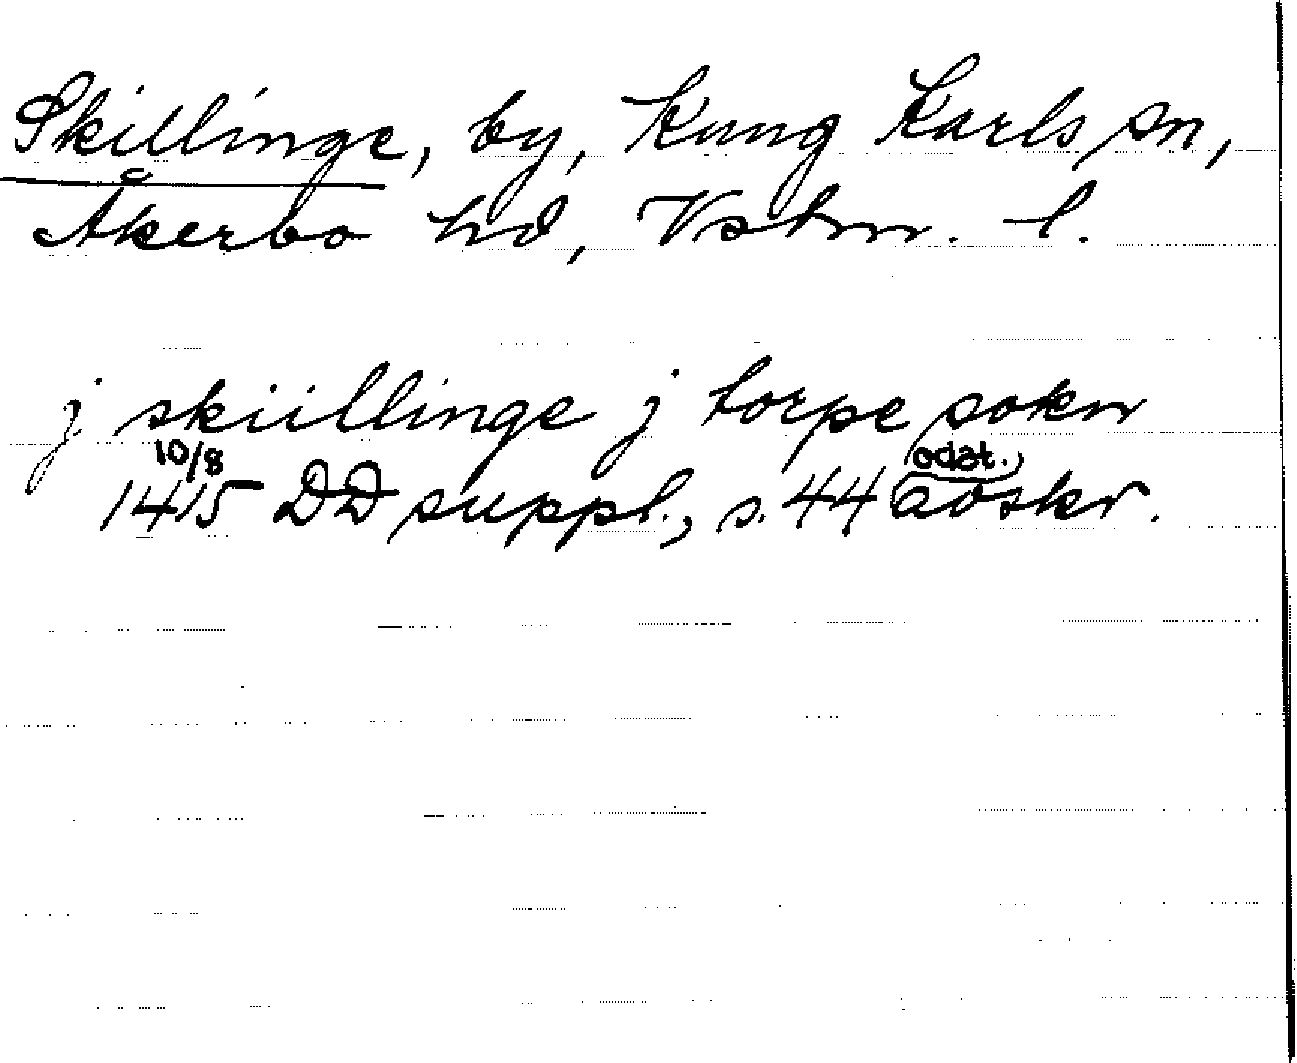 Skillinge, by, Kung Karls sn,
Åkerbo hd, Vstm. l.
j skiillinge j torpe sokn
10/8 odat.
1415 DD suppl., s. 44 avskr.